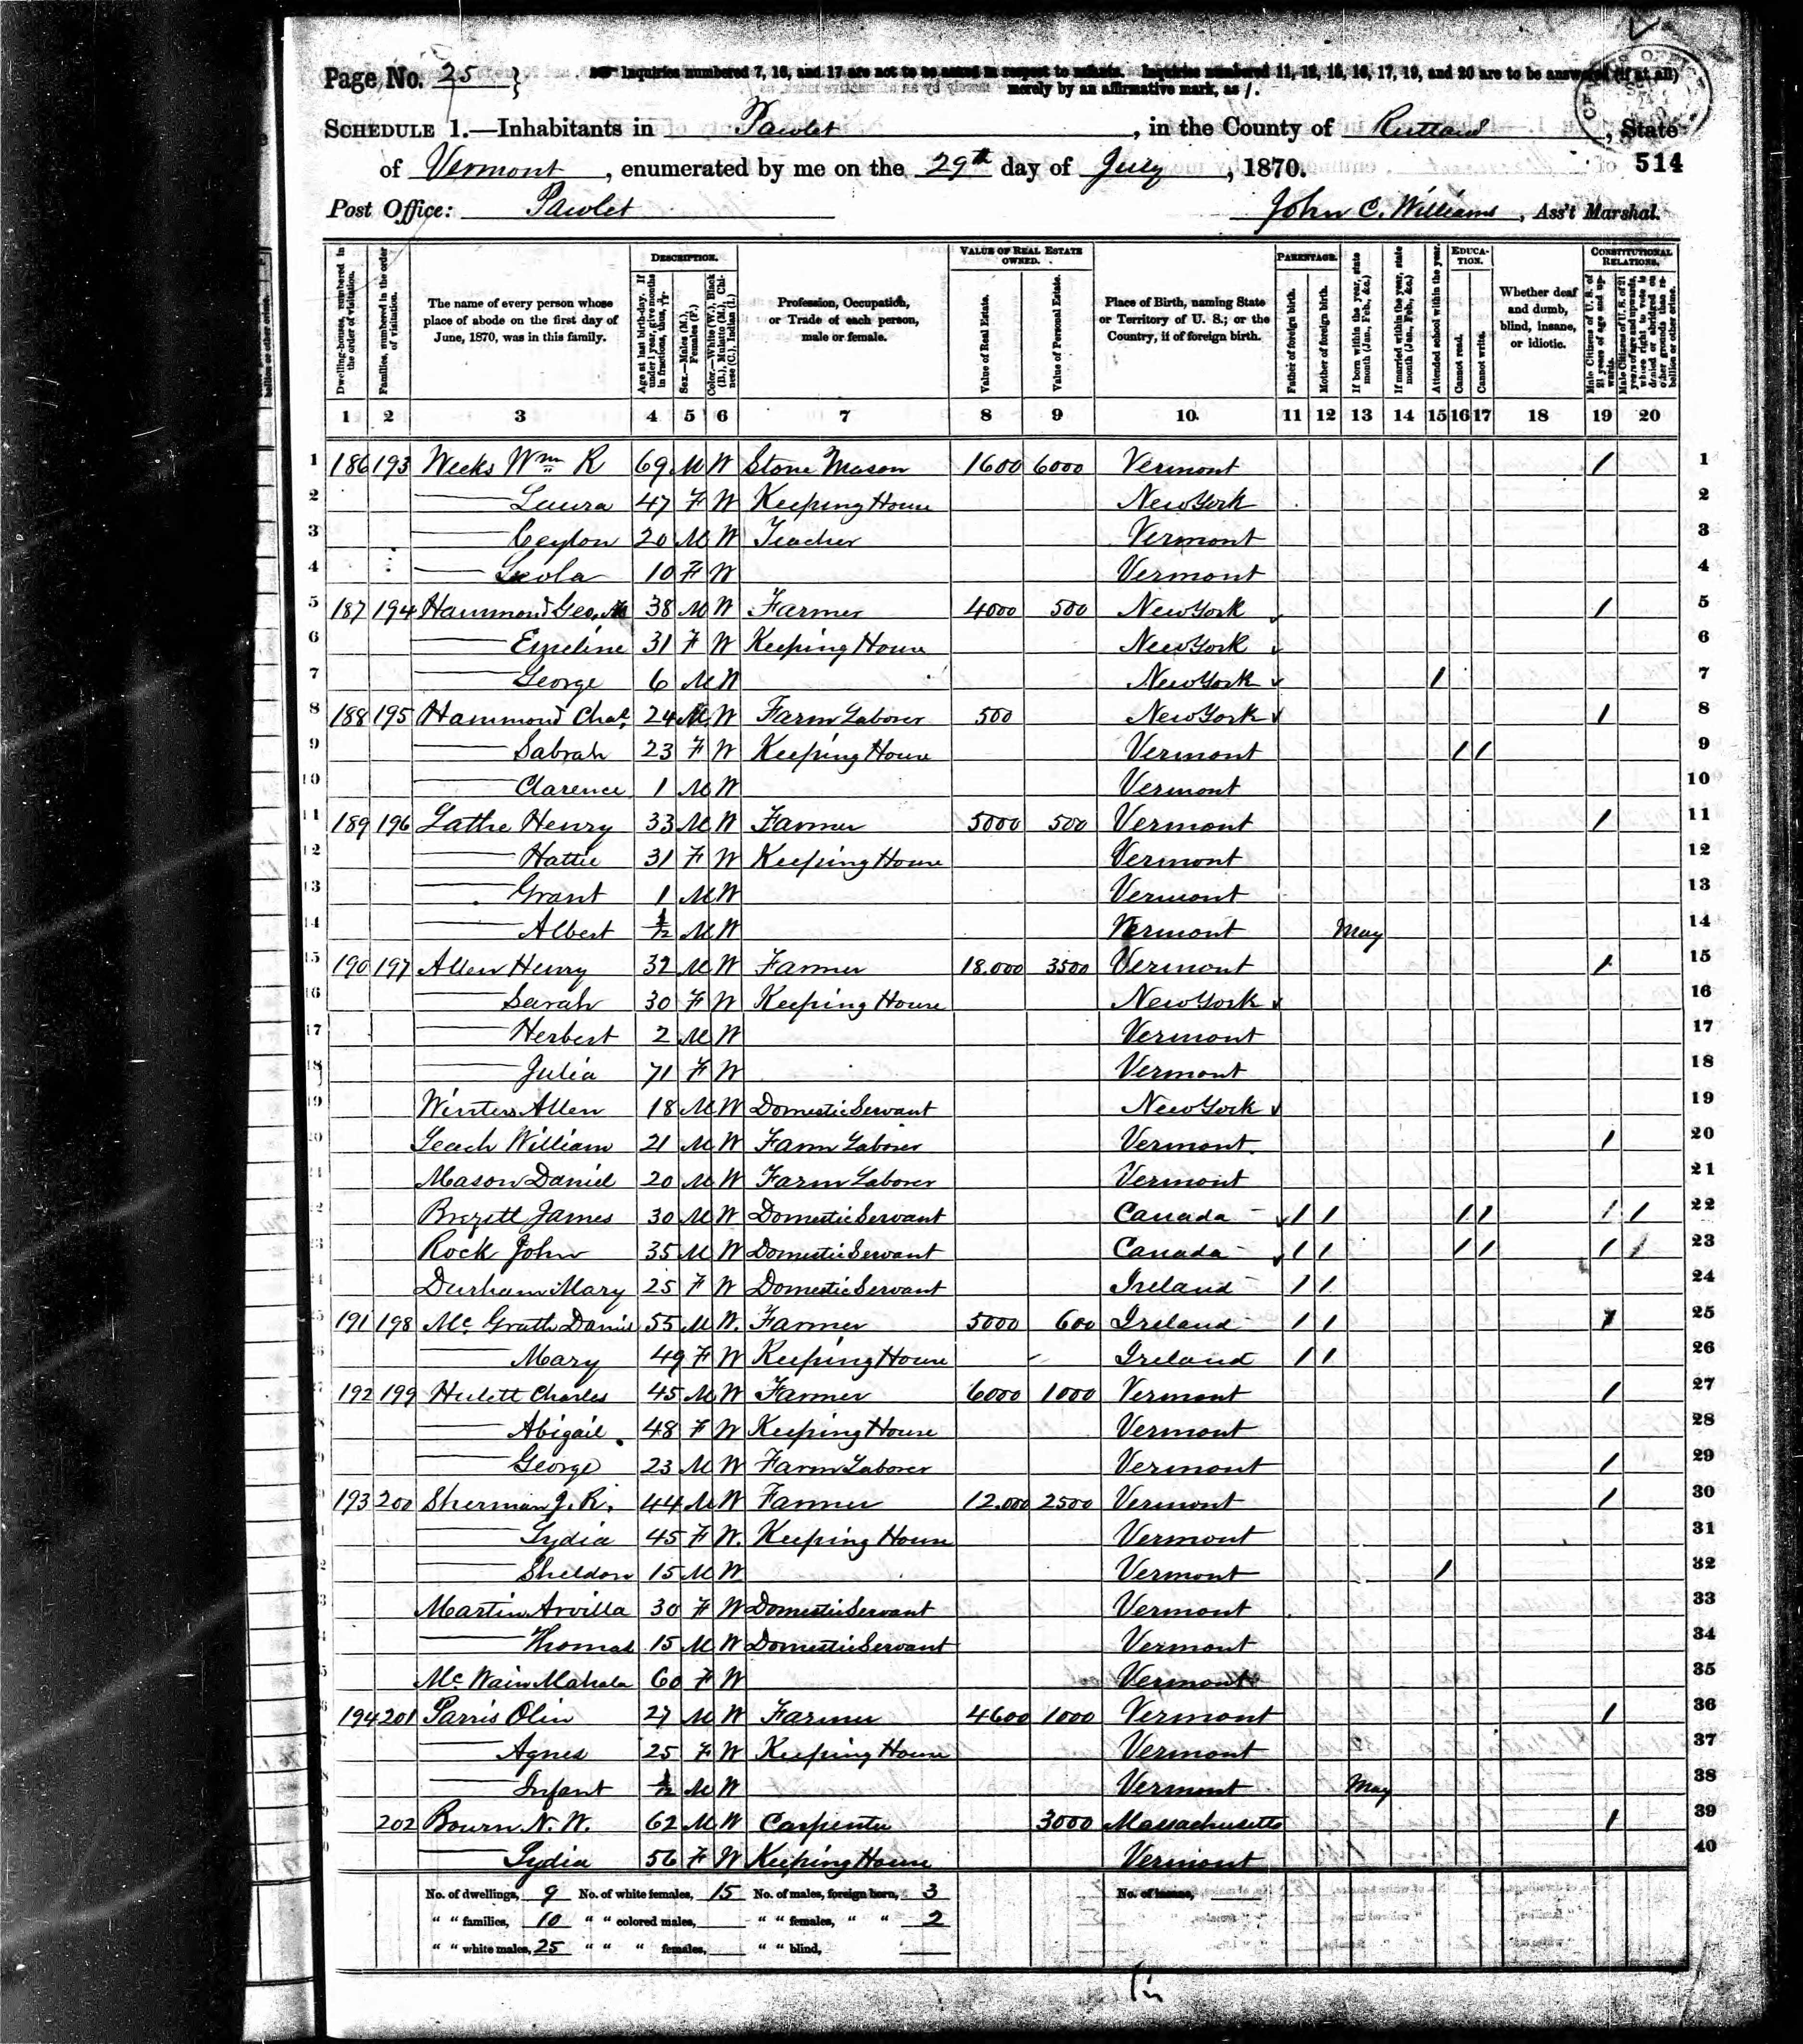 Page No. 25
Inquiries numbered 7, 16, and 17 are not to be asked in respect to infants. Inquiries numbered 11, 12, 15, 16, 17, 19, and 20 are to be answered (if at all)
merely by an affirmative mark, as /.
SCHEDULE 1.—Inhabitants in Pawlet, in the County of Rutland, State
of Vermont, enumerated by me on the 29th day of July, 1870.
514
Post Office: Pawlet
John C. Williams, Ass't Marshal.
Dwelling-houses, numbered in the order of visitation.
Families, numbered in the order of visitation.
The name of every person whose place of abode on the first day of June, 1870, was in this family.
DESCRIPTION.
Age at last birth-day. If under 1 year, give months in fractions, thus, 3/12
Sex.—Males (M.), Females (F.)
Color.—White (W.), Black (B.), Mulatto (M.), Chinese (C.), Indian (I.)
Profession, Occupation, or Trade of each person, male or female.
VALUE OF REAL ESTATE OWNED.
Value of Real Estate.
Value of Personal Estate.
Place of Birth, naming State or Territory of U. S.; or the Country, if of foreign birth.
PARENTAGE.
Father of foreign birth.
Mother of foreign birth.
If born within the year, state month (Jan., Feb., &c.)
If married within the year, state month (Jan., Feb., &c.)
EDUCATION.
Attended school within the year.
Cannot read.
Cannot write.
Whether deaf and dumb, blind, insane, or idiotic.
CONSTITUTIONAL RELATIONS.
Male Citizens of U. S. of 21 years of age and upwards.
Male Citizens of U. S. of 21 years of age and upwards, whose right to vote is denied or abridged on other grounds than rebellion or other crime.
1 2 3 4 5 6 7 8 9 10. 11 12 13 14 15 16 17 18 19 20
1 186 193 Weeks Wm R 69 M W Stone Mason 1600 6000 Vermont / 1
2 — Laura 47 F W Keeping House New York 2
3 — Ceylon 20 M W Teacher Vermont 3
4 — Leola 10 F W Vermont 4
5 187 194 Hammond Geo. M 38 M W Farmer 4000 500 New York / 5
6 — Emeline 31 F W Keeping House New York 6
7 — George 6 M W New York / 7
8 188 195 Hammond Chas. 24 M W Farm Laborer 500 New York / 8
9 — Sabrah 23 F W Keeping House Vermont / / 9
10 — Clarence 1 M W Vermont 10
11 189 196 Lathe Henry 33 M W Farmer 5000 500 Vermont / 11
12 — Hattie 31 F W Keeping House Vermont 12
13 — Grant 1 M W Vermont 13
14 — Albert 1/12 M W Vermont May 14
15 190 197 Allen Henry 32 M W Farmer 18.000 3500 Vermont / 15
16 — Sarah 30 F W Keeping House New York 16
17 — Herbert 2 M W Vermont 17
18 — Julia 71 F W Vermont 18
19 Winters Allen 18 M W Domestic Servant New York 19
20 Leach William 21 M W Farm Laborer Vermont / 20
21 Mason Daniel 20 M W Farm Laborer Vermont 21
James 30 M W Domestic Servant Canada / / / / / / 22
Rock John 35 M W Domestic Servant Canada / / / / / / 23
Durham Mary 25 F W Domestic Servant Ireland / / 24
191 198 Mc Grath Daniel 55 M W. Farmer 5000 600 Ireland / / / 25
— Mary 49 F W Keeping House Ireland / / 26
192 199 Hulett Charles 45 M W Farmer 6000 1000 Vermont / 27
— Abigail 48 F W Keeping House Vermont 28
— George 23 M W Farm Laborer Vermont / 29
193 200 Sherman J. R. 44 M W Farmer 12.000 2500 Vermont / 30
— Lydia 45 F W. Keeping House Vermont 31
— Sheldon 15 M W Vermont / 32
Martin Arvilla 30 F W Domestic Servant Vermont 33
— Thomas 15 M W Domestic Servant Vermont 34
Mc Wain Mahala 60 F W Vermont 35
194 201 Parris Olin 27 M W Farmer 4600 1000 Vermont / 36
— Agnes 25 F W Keeping House Vermont 37
— Infant 1/12 M W Vermont May 38
202 Bourn N. W. 62 M W Carpenter 3000 Massachusetts / 39
— Lydia 56 F W Keeping House Vermont 40
No. of dwellings, 9 No. of white females, 15 No. of males, foreign born, 3 No. of insane,
" " families, 10 " " colored males, " " females, " " 2
" " white males, 25 " " " females, " " blind,